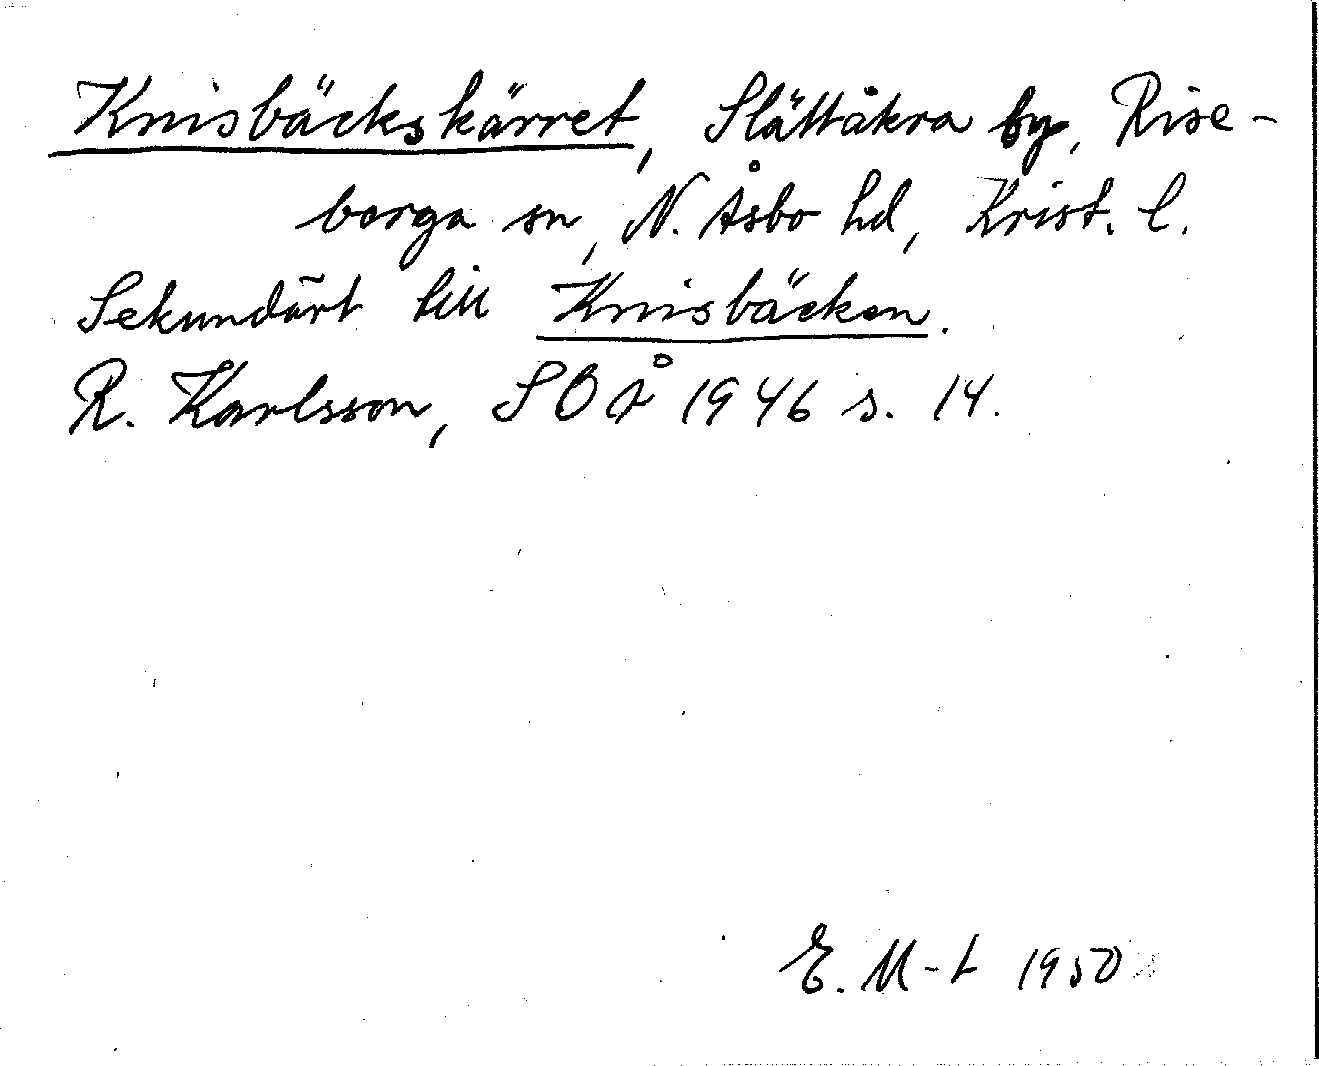 Knisbäckskärret, Slättåkra by, Rise-
berga sn, N. Åsbo hd, Krist. l.
Sekundärt till Knisbäcken.
R. Karlsson, SOÅ 1946 s. 14.
E. M-t 1950